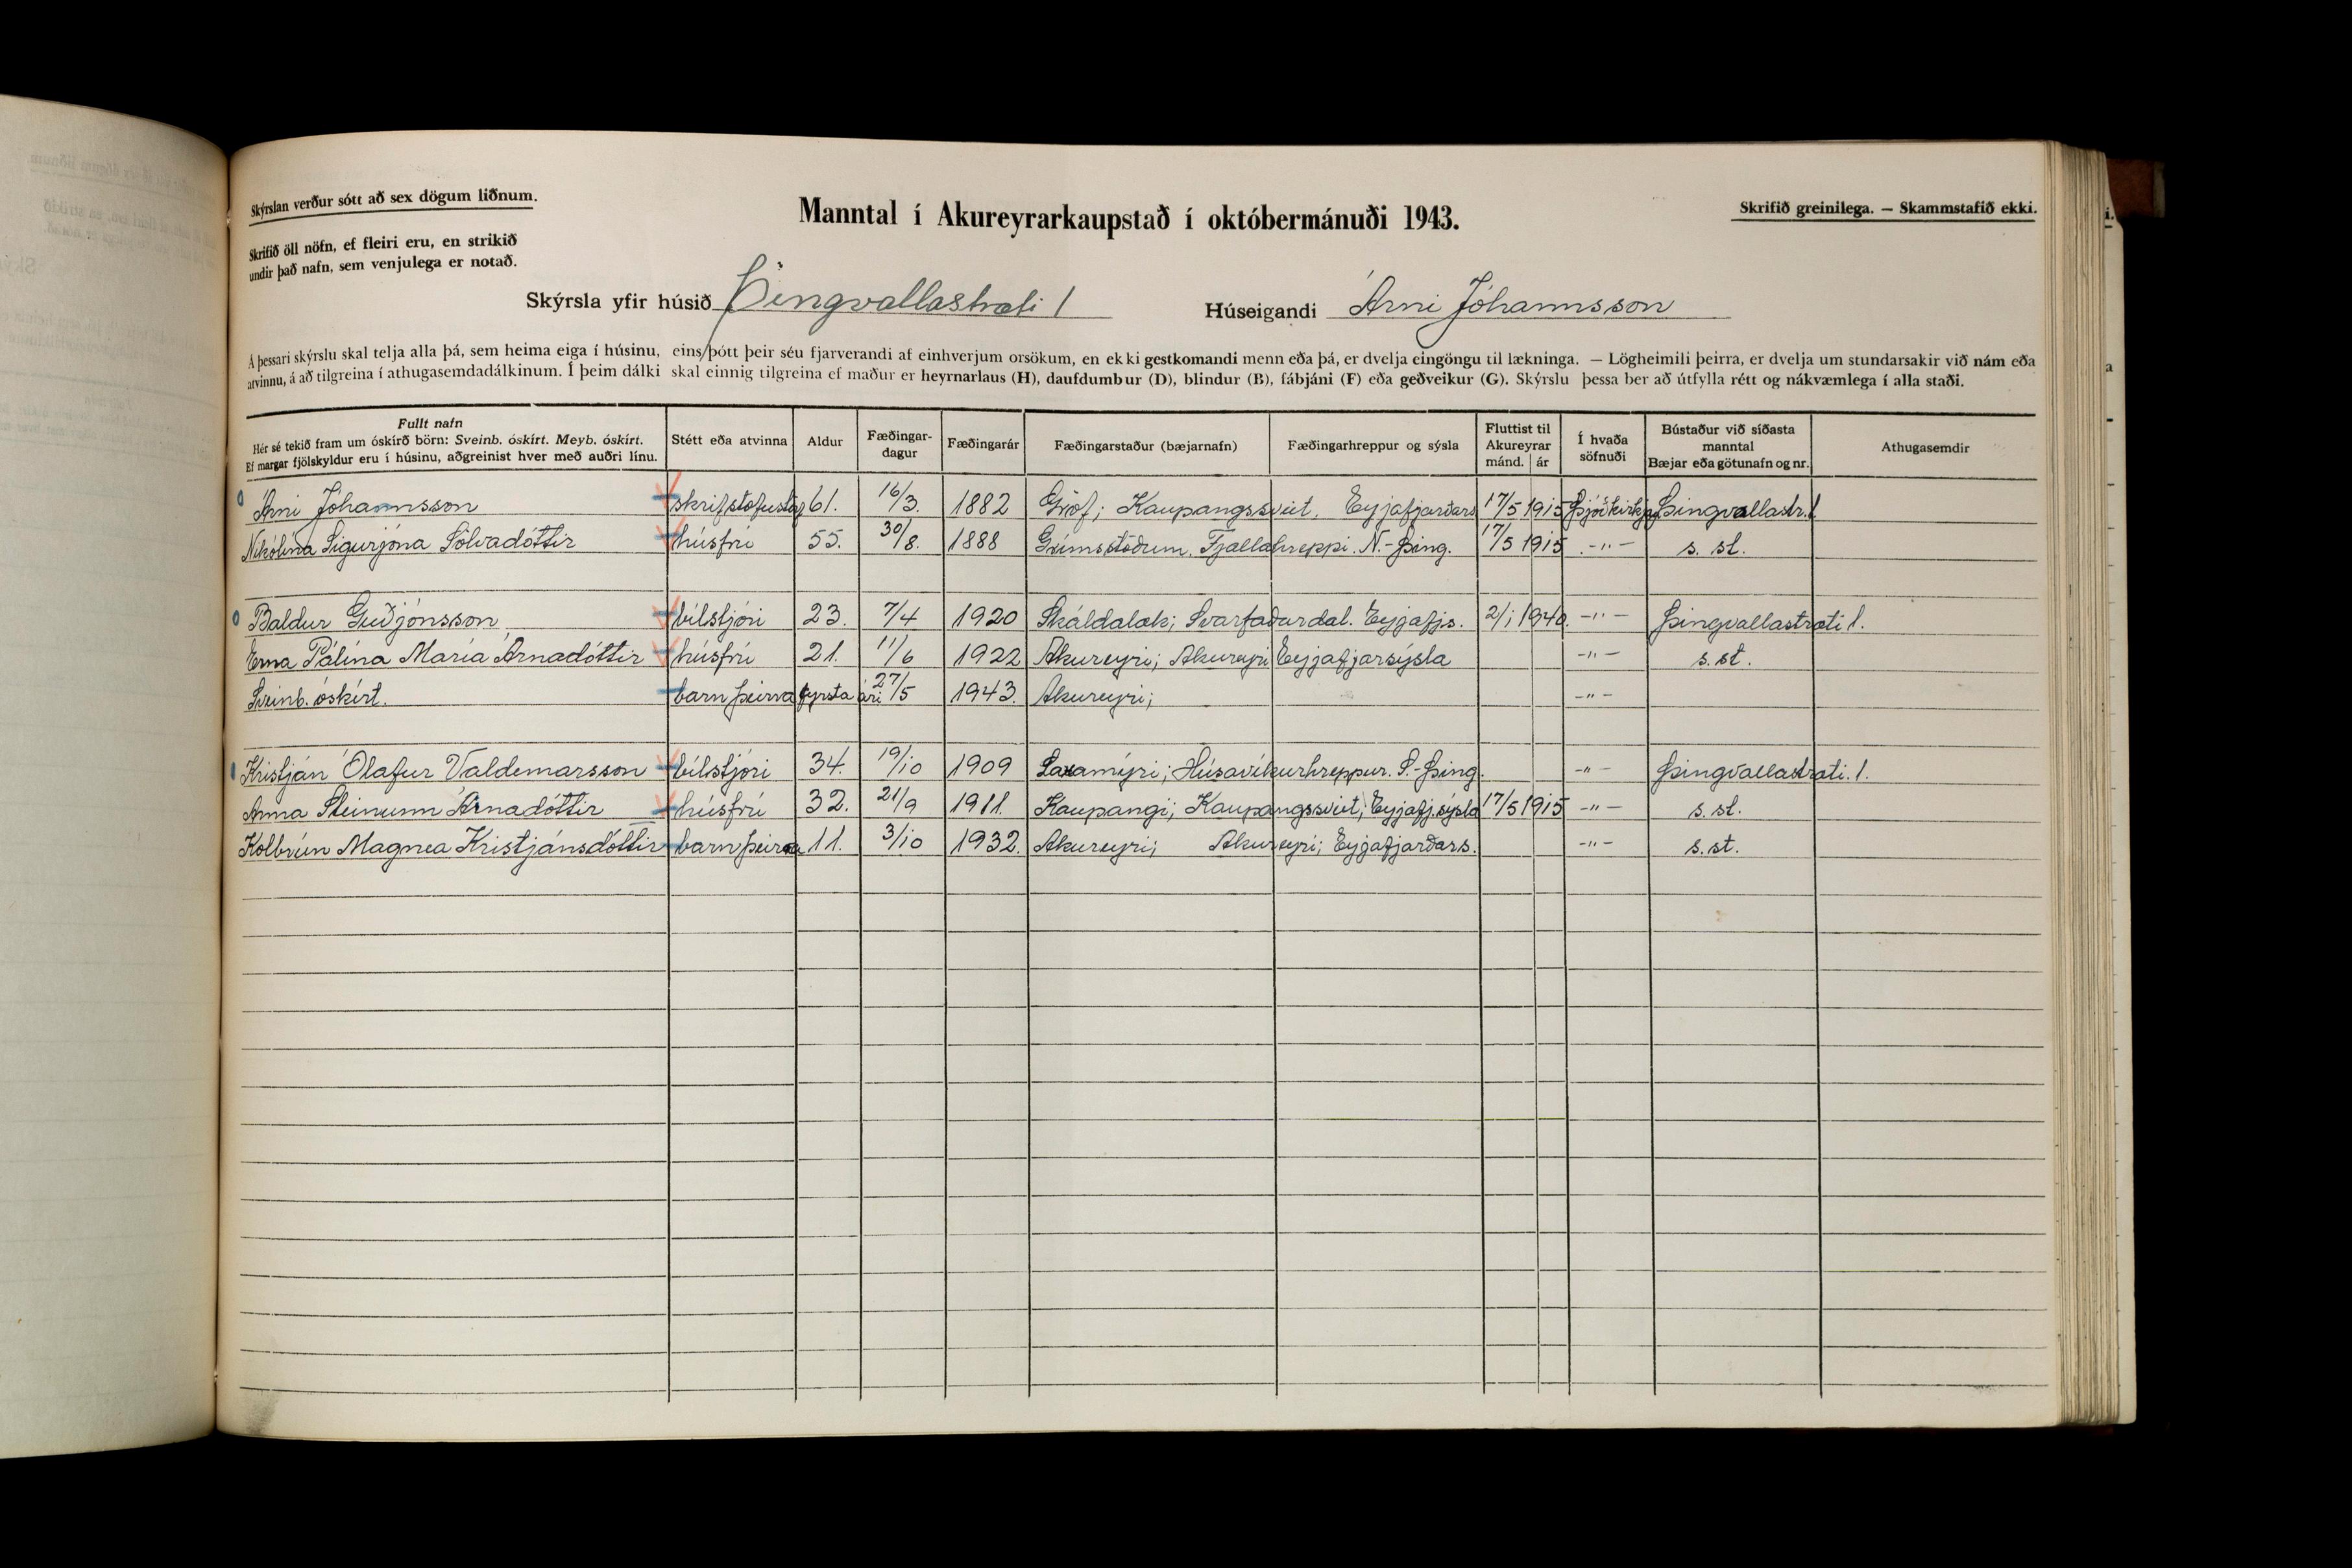 Skýrslan verður sótt að sex dögum liðnum.
Manntal í Akureyrarkaupstað í októbermánuði 1943.
Skrifið greinilega. — Skammstafið ekki.
Skrifið öll nöfn, ef fleiri eru, en strikið
undir það nafn, sem venjulega er notað.
Skýrsla yfir húsið Þingvallastræti 1 Húseigandi Árni Jóhannsson
Á þessari skýrslu skal telja alla þá, sem heima eiga í húsinu, eins þótt þeir séu fjarverandi af einhverjum orsökum, en ekki gestkomandi menn eða þá, er dvelja eingöngu til lækninga. — Lögheimili þeirra, er dvelja um stundarsakir við nám eða
atvinnu, á að tilgreina í athugasemdadálkinum. Í þeim dálki skal einnig tilgreina ef maður er heyrnarlaus (H), daufdumbur (D), blindur (B), fábjáni (F) eða geðveikur (G). Skýrslu þessa ber að útfylla rétt og nákvæmlega í alla staði.
Fullt nafn
Hér sé tekið fram um óskírð börn: Sveinb. óskírt. Meyb. óskírt.
Ef margar fjölskyldur eru í húsinu, aðgreinist hver með auðri línu.
Stétt eða atvinna
Aldur
Fæðingar-
dagur
Fæðingarár
Fæðingarstaður (bæjarnafn)
Fæðingarhreppur og sýsla
Fluttist til
Akureyrar
mánd. ár
Í hvaða
söfnuði
Bústaður við síðasta
manntal
Bæjar eða götunafn og nr.
Athugasemdir
Árni Jóhannsson skrifstofustörf 61. 16/3. 1882 Gröf; Kaupangssveit. Eyjafjarðars 17/5 1915 Þjóðkirkja Þingvallastr. 1
Nikólína Sigurjóna Sölvadóttir húsfrú 55. 30/8. 1888 Grímsstöðum. Fjallahreppi. N.-Þing. 17/5 1915 -"- s. st.
Baldur Guðjónsson bílstjóri 23. 7/4 1920 Skáldalæk; Svarfaðardal. Eyjafjs. 2/1 1940. -"- Þingvallastræti 1.
Erna Pálína María Árnadóttir húsfrú 21. 11/6 1922 Akureyri; Akureyri Eyjafjarsýsla -"- s. st.
Sveinb. óskírt. barn þeirra fyrsta ári 27/5 1943. Akureyri; -"-
Kristján Ólafur Valdemarsson bílstjóri 34. 19/10 1909 Laxamýri; Húsavíkurhreppur. S.-Þing. -"- Þingvallastræti. 1.
Anna Steinunn Árnadóttir húsfrú 32. 21/9 1911. Kaupangi; Kaupangssveit; Eyjafj.sýsla 17/5 1915 -"- s. st.
Kolbrún Magnea Kristjánsdóttir barn þeirra 11. 3/10 1932. Akureyri; Akureyri; Eyjafjarðars. -"- s. st.